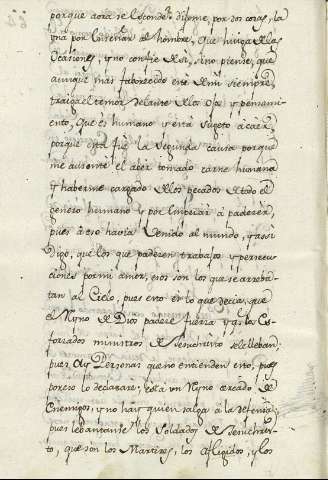 porque aora se esconde: dixome, por dos cosas, la
vna por enseñar al hombre, que huiga de las
ocasiones, y no confie de si, sino piense, que
aunque mas faborecido este de mi siempre,
traiga el temor delante de los ojos y pensami-
ento, que es humano y está sugeto a caèr,
porque esta fuè la segunda causa porque
me ausenté el aber tomado carne humana
y haberme cargado de los pecados de todo el
genero humano y por empezar à padezer,
pues à eso havia venido al mundo, y assi
digo, que los que padezen trabajos y persecu-
ciones por mi amor, esos son los que se arreba-
tan al Cielo, pues esto es lo que decia, que
el Reyno de Dios padece fuerza y que los Es-
forzados ministros de Jesuchristo se le lleban;
pues ay Personas que no entienden esto, pues
por eso lo declararè: està un Reyno cercado de
Enemigos, y no hay quien salga à la defensa;
pues lebantanse los Soldados de Jesuchris-
to, que son los Martires, los afligidos, y los